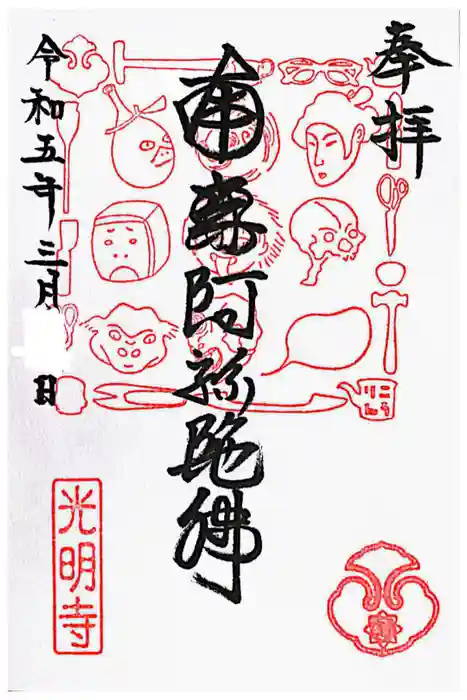 奉拝
南無阿弥陀佛
令和五年三月
日
光明寺